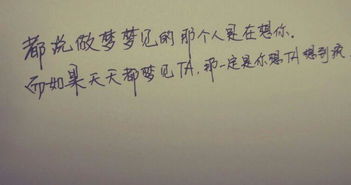 都说做梦梦见的那个人是在想你.
而如果天天都梦见TA,那一定是你想TA想到疯